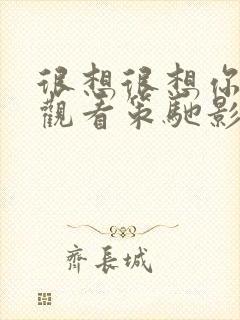 很想很想你
觀看策馳影
齊長城